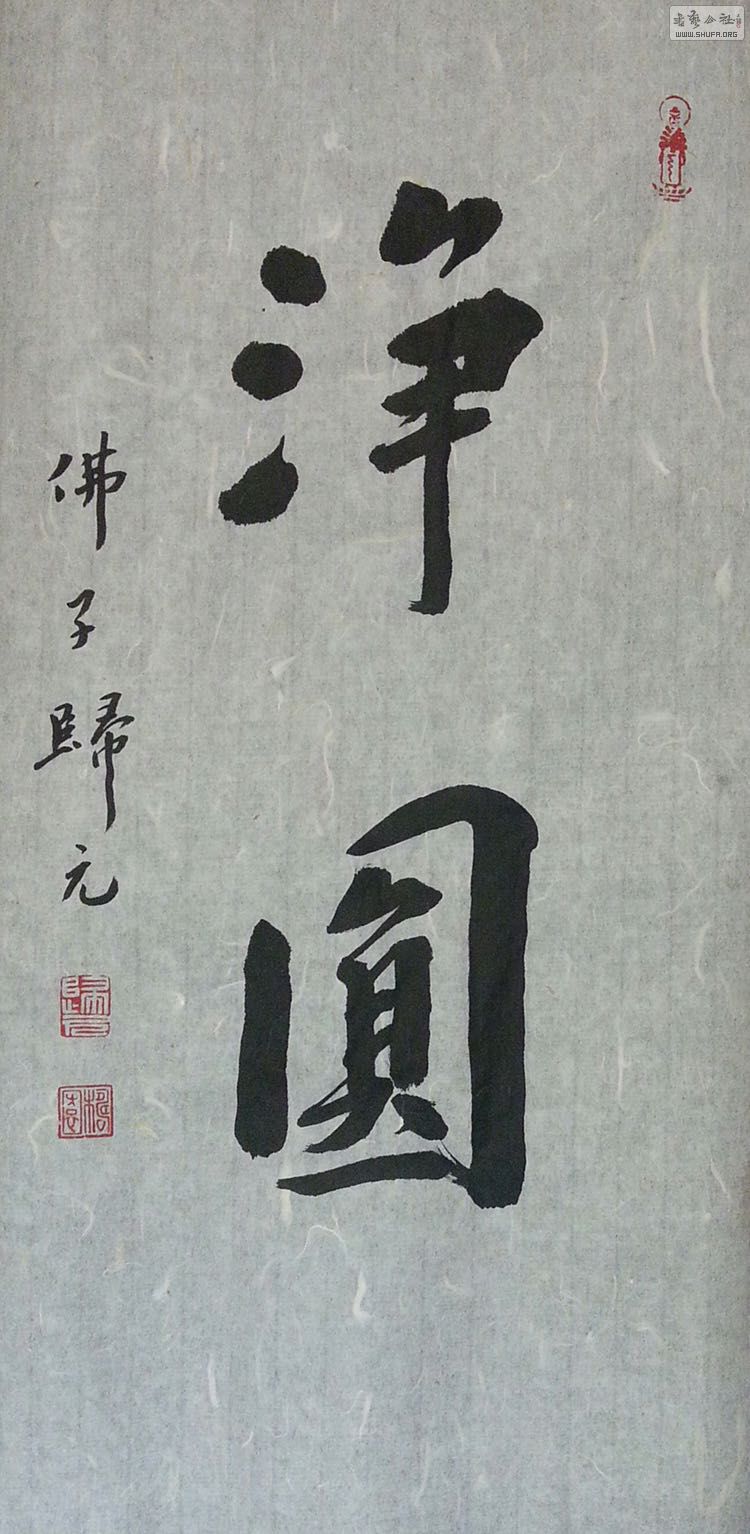 淨圓
佛子歸元
歸元
書藝公社
WWW.SHUFA.ORG